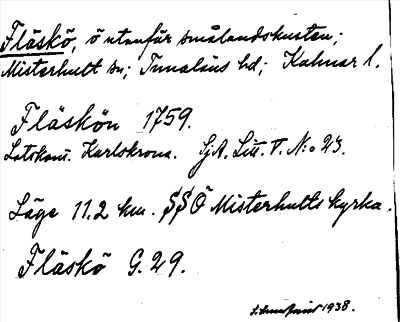 Fläskö, ö utanför smålandskusten;
Misterhult sn; Tunaläns hd; Kalmar l.
Fläskön 1759.
Lotskont. Karlskrona. SjA. Litt. V. N:o 23.
Läge 11.2 km. SSÖ Misterhults kyrka.
Fläskö G.29.
1938.